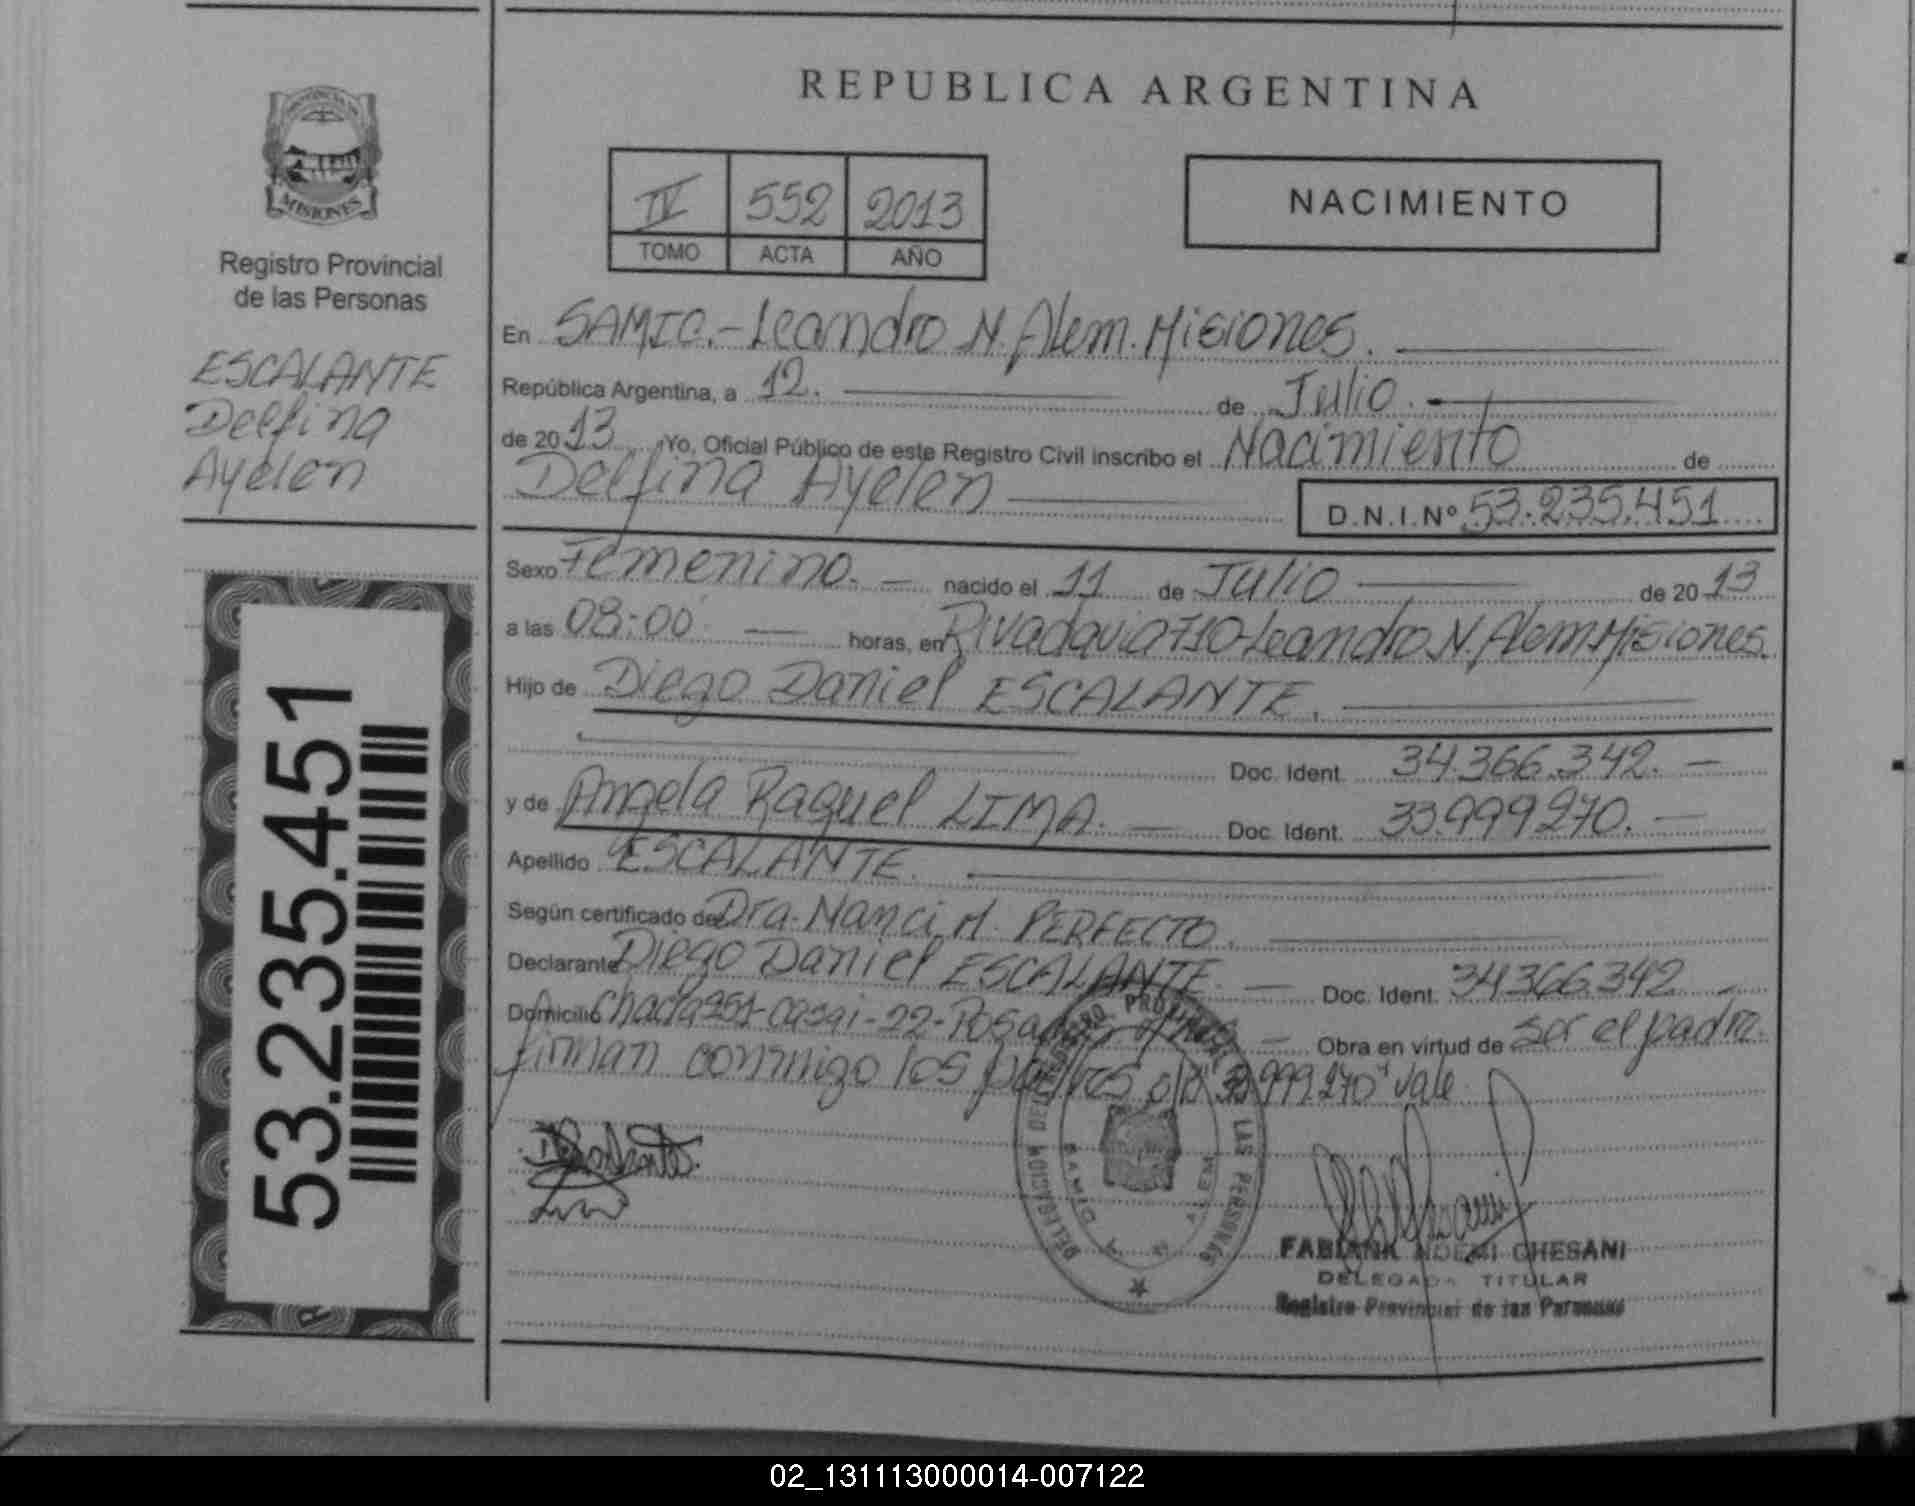 PROVINCIA DE
MISIONES
Registro Provincial
de las Personas
ESCALANTE
Delfina
Ayelen
53.235.451
REPUBLICA ARGENTINA
IV 552 2013
TOMO ACTA AÑO
NACIMIENTO
En SAMIC.-Leandro N. Alem. Misiones.
República Argentina, a 12. de Julio.
de 2013 Yo, Oficial Público de este Registro Civil inscribo el Nacimiento de
Delfina Ayelen
D.N.I.Nº 53.235.451
Sexo Femenino. nacido el 11 de Julio de 2013
a las 08:00 horas, en Rivadavia 710-Leandro N. Alem Misiones.
Hijo de Diego Daniel ESCALANTE.
Doc. Ident. 34.366.342.
y de Angela Raquel LIMA. Doc. Ident. 33.999.270.
Apellido ESCALANTE.
Según certificado de Dra. Nanci M. PERFECTO.
Declarante Diego Daniel ESCALANTE. Doc. Ident. 34366.342
Domicilio Chacra 251-casa i-22-Posadas Obra en virtud de ser el padre.
firman conmigo los padres 33.999.270" vale
DELEGACION DEL REGISTRO PROVINCIAL DE LAS PERSONAS
SAMIC
ALEM
FABIANA NOEMI CHESANI
DELEGADA TITULAR
Registro Provincial de las Personas
02_131113000014-007122